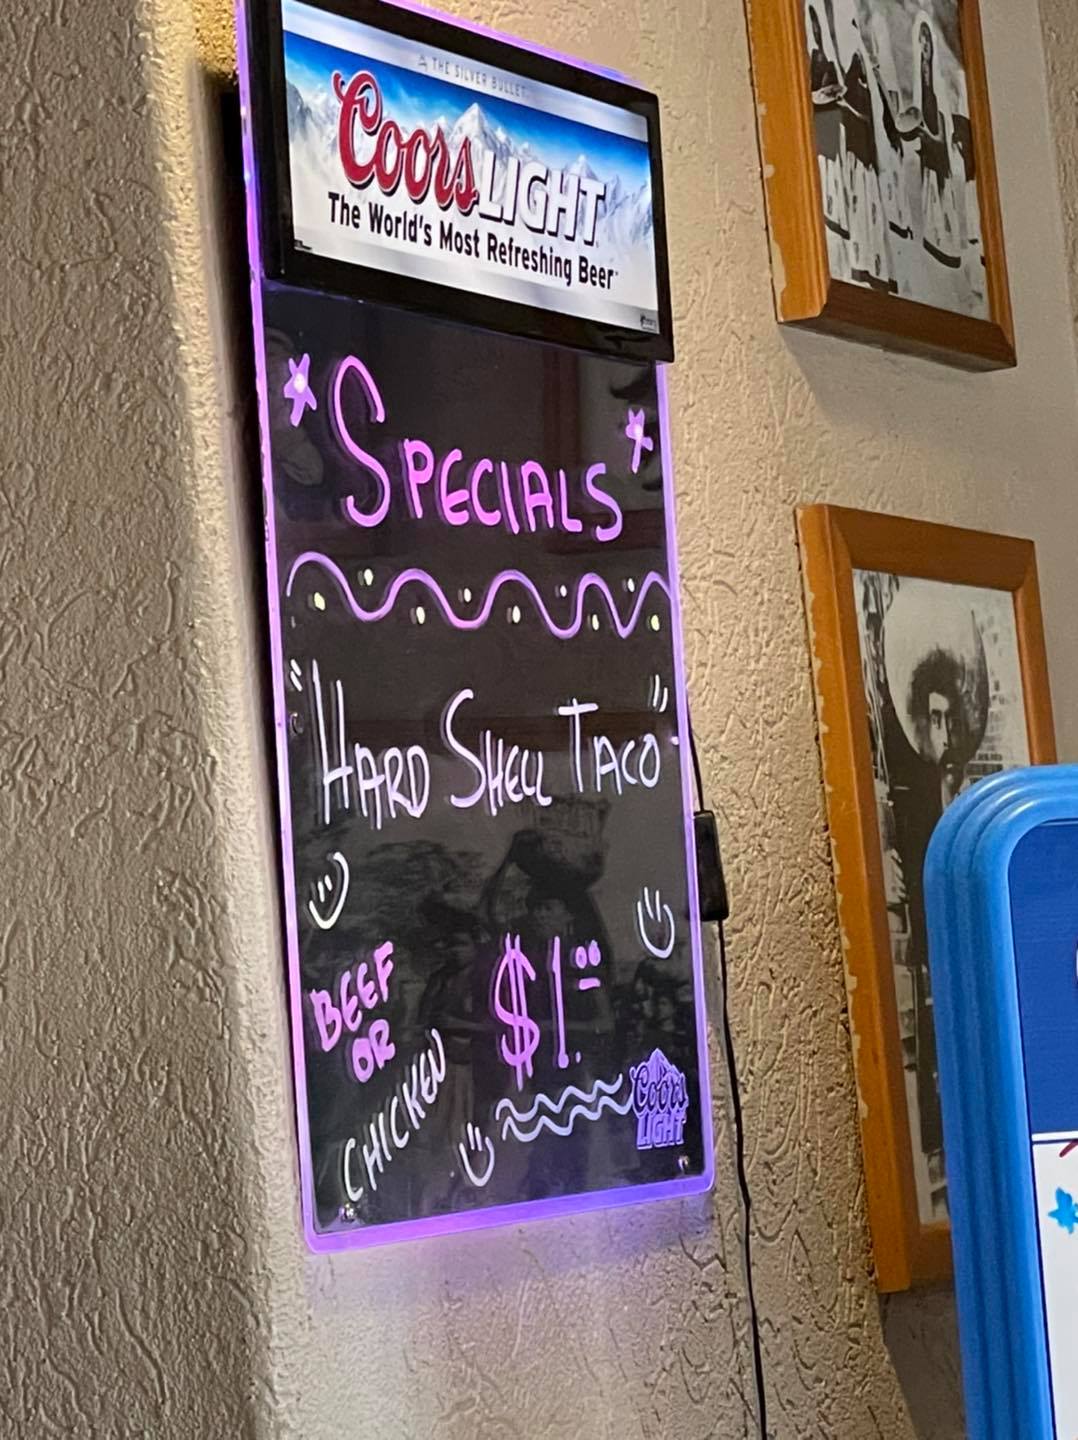 THE SILVER BULLET
Coors LIGHT
The World's Most Refreshing Beer
SPECIALS
"HARD SHELL TACO"
BEEF
OR
CHICKEN
$1.00
Coors
LIGHT